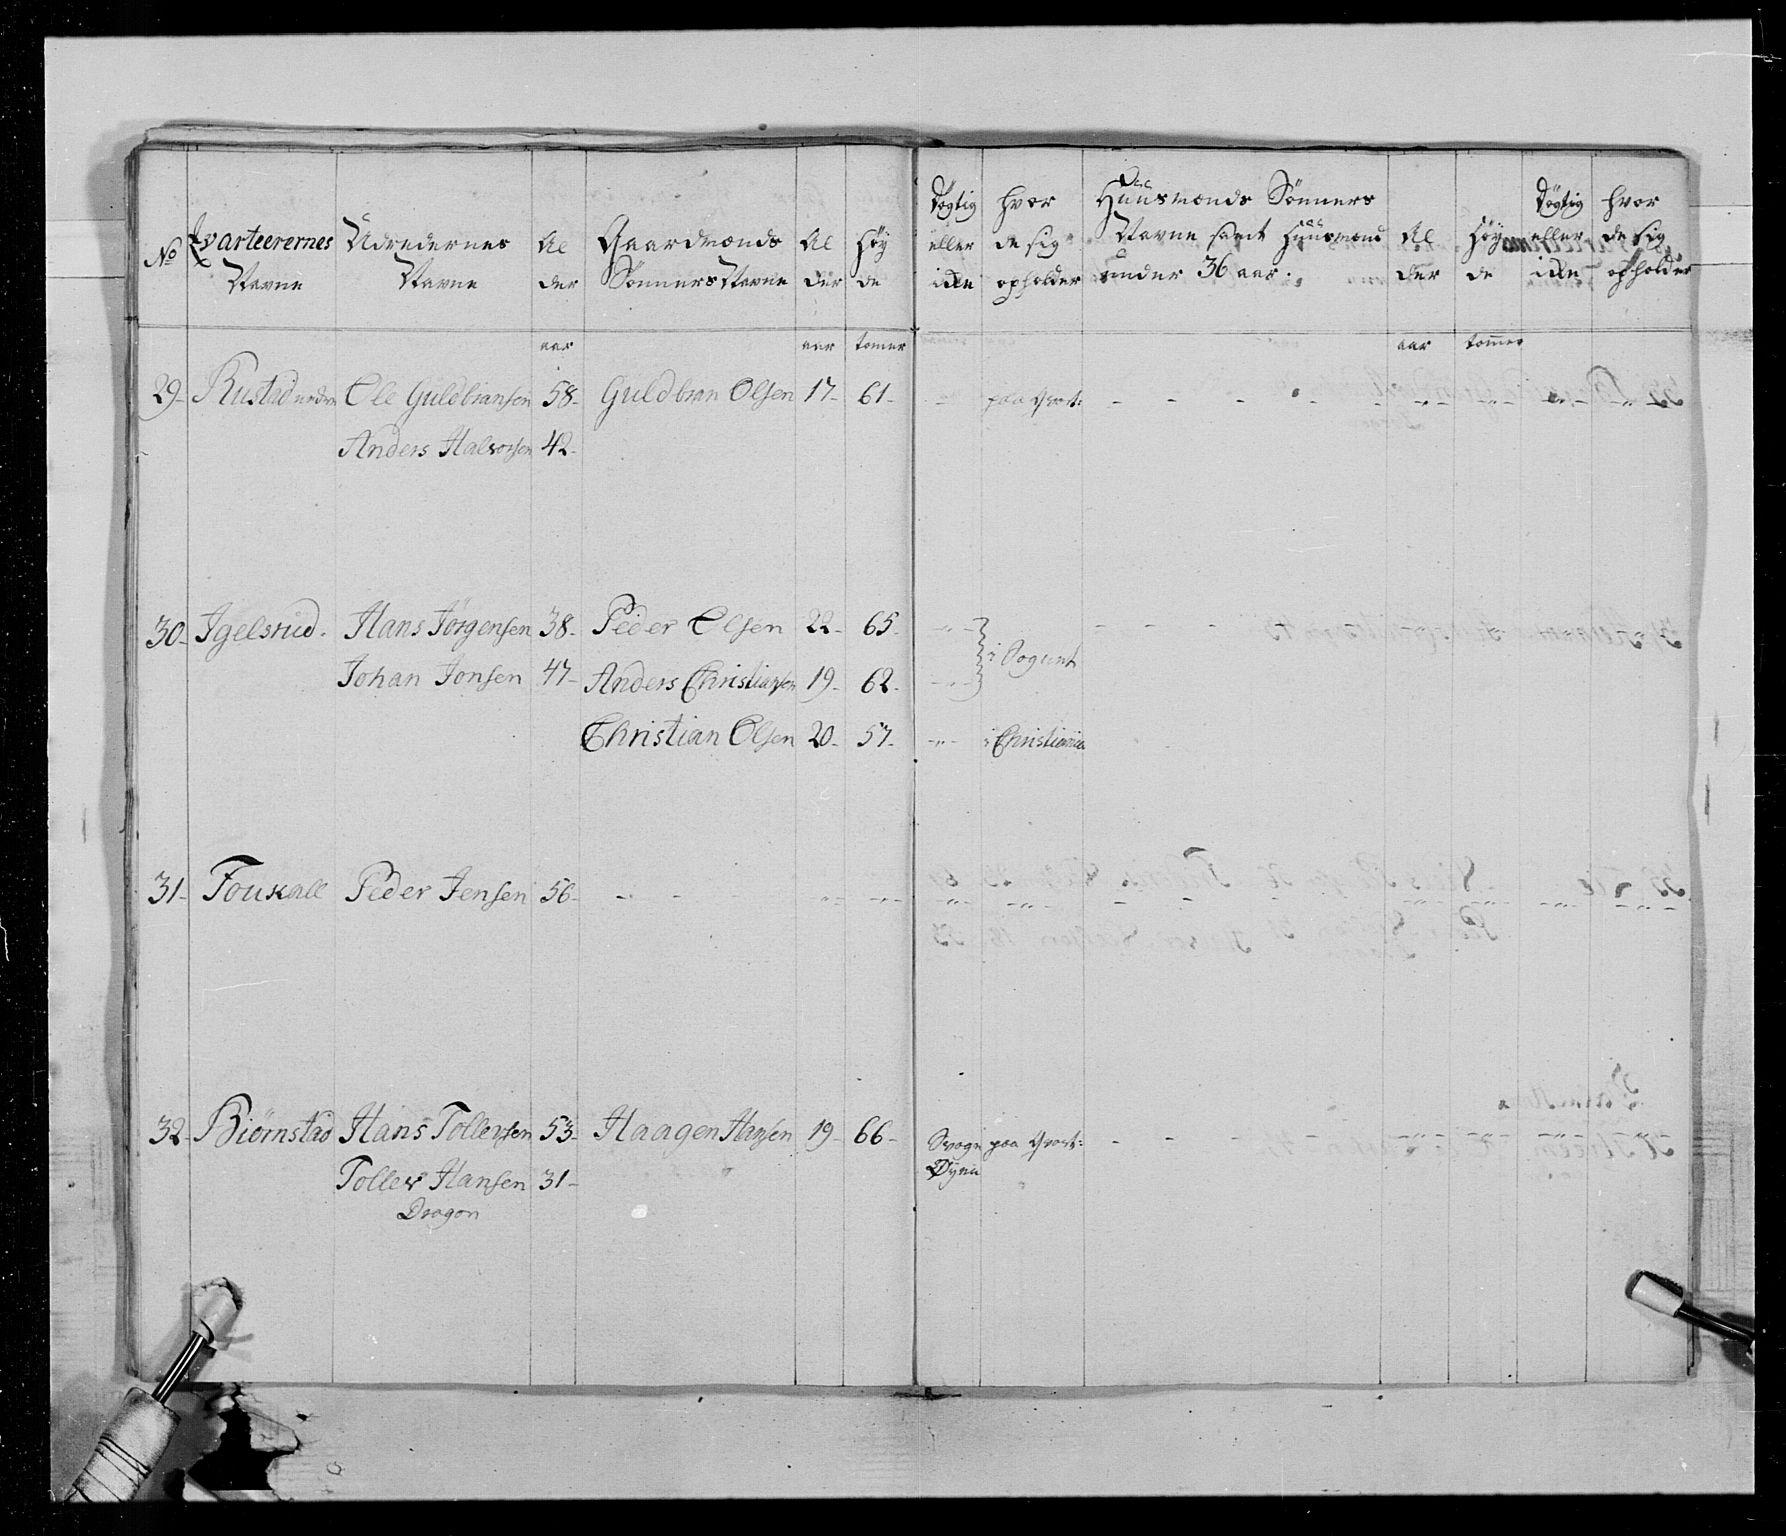 No Qvarteerernes Navne | Udredernes Navne | Al der | Gaardmænds Sønners Navne | Al der | Høy de | Døgtig eller ikke | hvor de sig opholder | Huusmænds Sønners Navne samt Huusmænd under 36 aar. | Al der | Høy de | Døgtig eller ikke | hvor de sig opholder
aar | aar | tomer | aar | tommer
29 Rustad nedre Ole Guldbransen 58 Guldbran Olsen 17 61 paa Qvart:
Anders Halvorsen 42
30 Igelsrud. Hans Jørgensen 38 Peder Olsen 22 65
i Sognet
Johan Jonsen 47 Anders Christiansen 19 62
Christian Olsen 20 57 i Christiania
31 Foukall Peder Jensen 56
32 Biørnstad Hans Tollevsen 53 Haagen Hansen 19 66 Svage paa Qvart:
Tollev Hansen 31 Øyne
Dragon